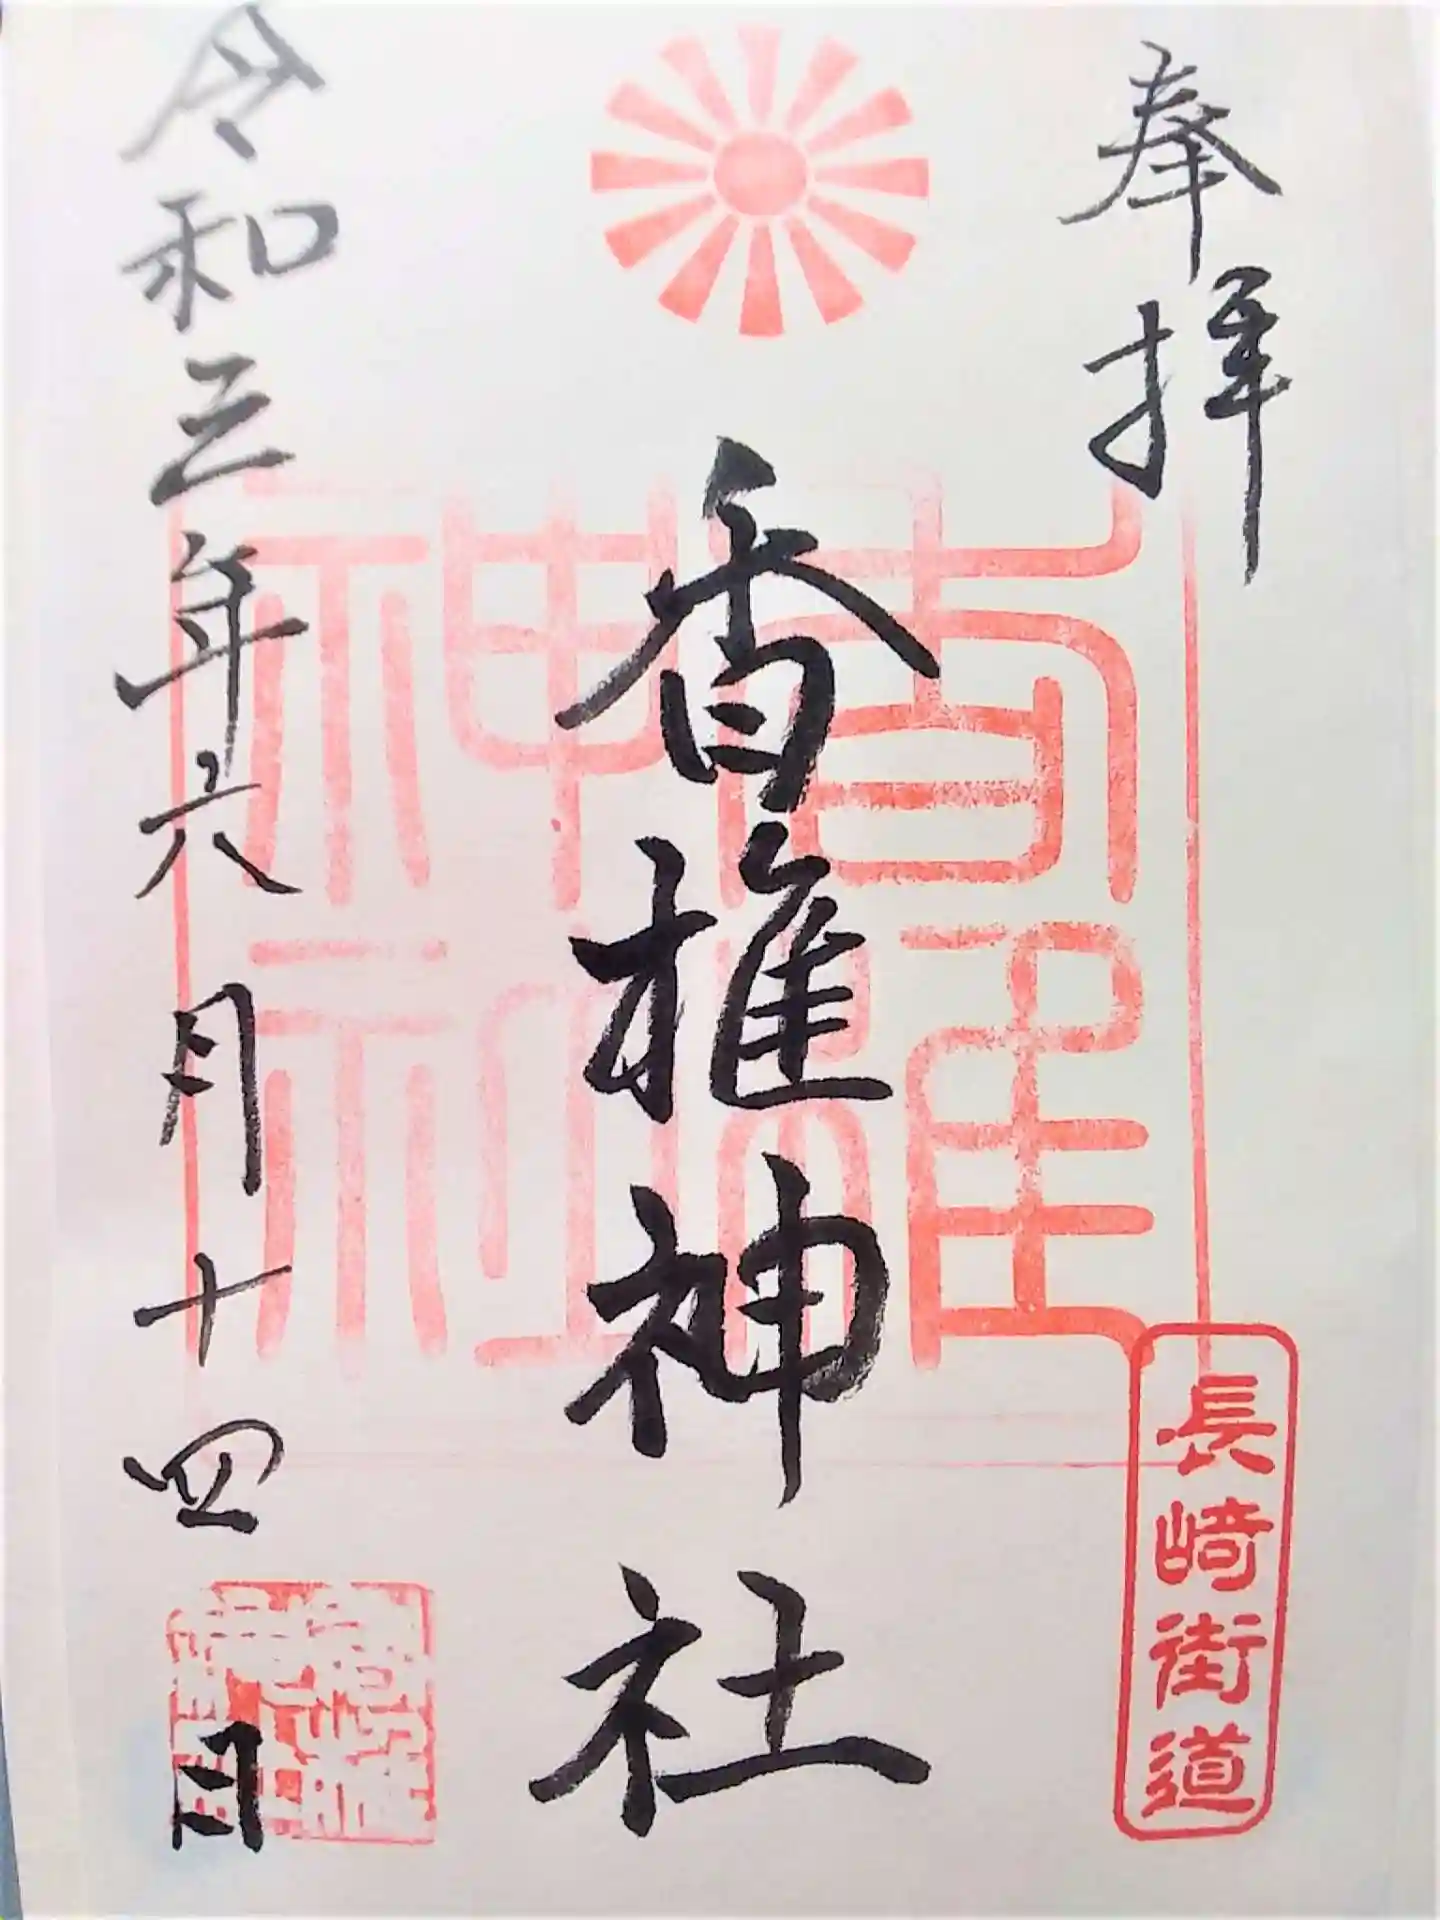 奉拝
長崎街道
香椎神社
香椎神社
令和三年六月十四日